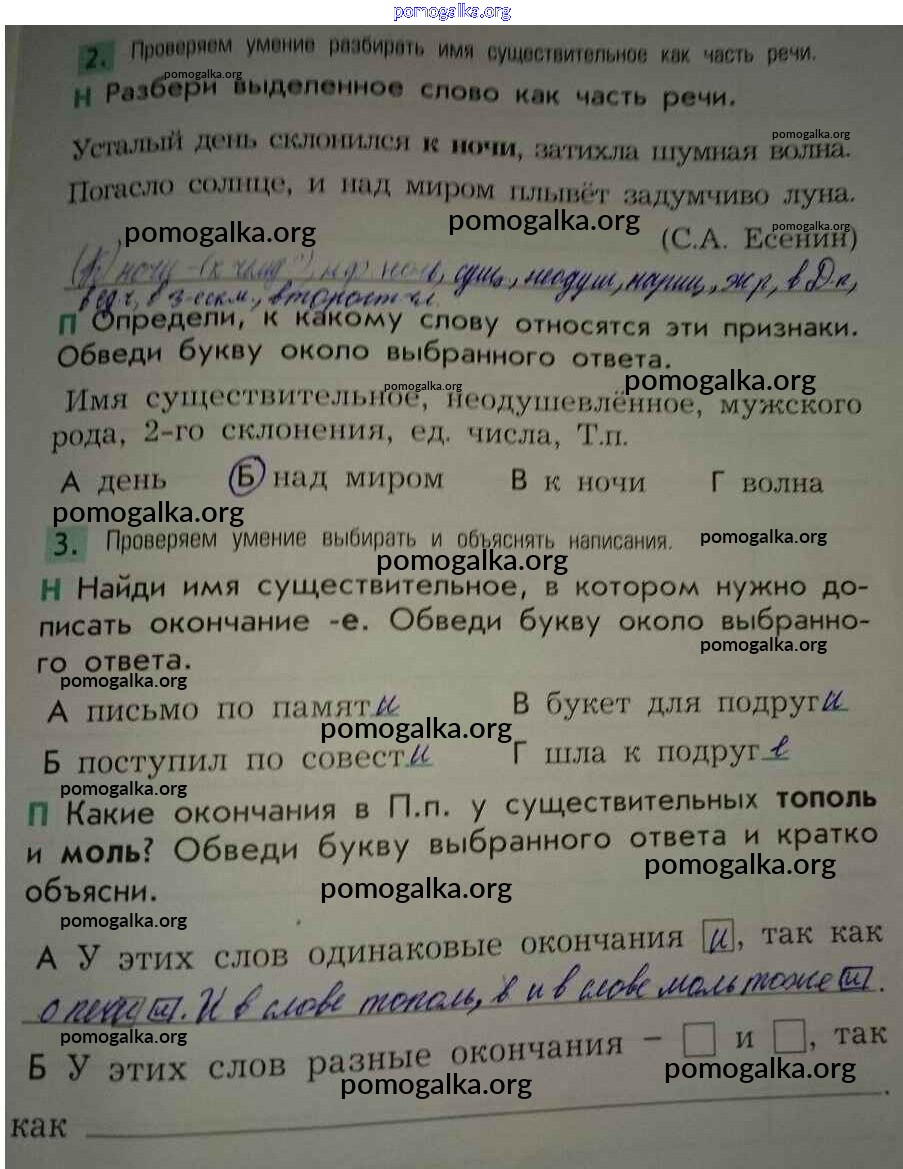 pomogalka.org
2. Проверяем умение разбирать имя существительное как часть речи.
pomogalka.org
Н Разбери выделенное слово как часть речи.
pomogalka.org
Усталый день склонился к ночи, затихла шумная волна.
Погасло солнце, и над миром плывёт задумчиво луна.
pomogalka.org pomogalka.org pomogalka.org
(С.А. Есенин)
ночи сущ., неодуш., нариц., ж.р., в Д.п.,
П Определи, к какому слову относятся эти признаки.
Обведи букву около выбранного ответа.
pomogalka.org pomogalka.org
Имя существительное, неодушевлённое, мужского
рода, 2-го склонения, ед. числа, Т.п.
А день Б над миром В к ночи Г волна
pomogalka.org
3. Проверяем умение выбирать и объяснять написания.
pomogalka.org
pomogalka.org
Н Найди имя существительное, в котором нужно до-
писать окончание -е. Обведи букву около выбранно-
pomogalka.org
го ответа.
pomogalka.org
А письмо по памяти В букет для подруги
pomogalka.org
Б поступил по совести Г шла к подруге
pomogalka.org
П Какие окончания в П.п. у существительных тополь
и моль? Обведи букву выбранного ответа и кратко
pomogalka.org
объясни.
pomogalka.org
pomogalka.org
А У этих слов одинаковые окончания и, так как
И в слове тополь, и в слове моль тоже и.
pomogalka.org
Б У этих слов разные окончания – и , так
pomogalka.org pomogalka.org
как